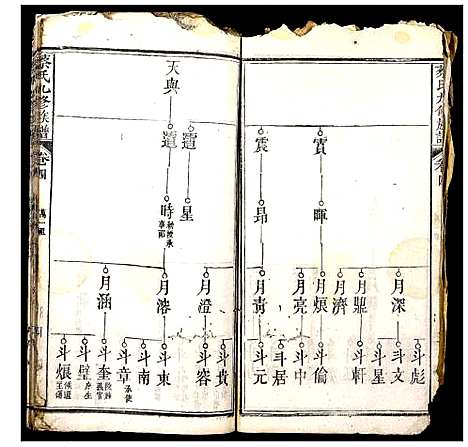 蔡氏九修族譜
卷四
寶
暉
震
昴
月深
月鼎
月濟
月烺
月亮
月青
斗彪
斗文
斗星
斗軒
斗倫
斗中
斗居
斗元
蔡氏九修族譜
卷四
天與
道
星
時
月澄
月溶
月涵
斗貴
斗容
斗東
斗南
斗章
斗奎
斗璧
斗煨